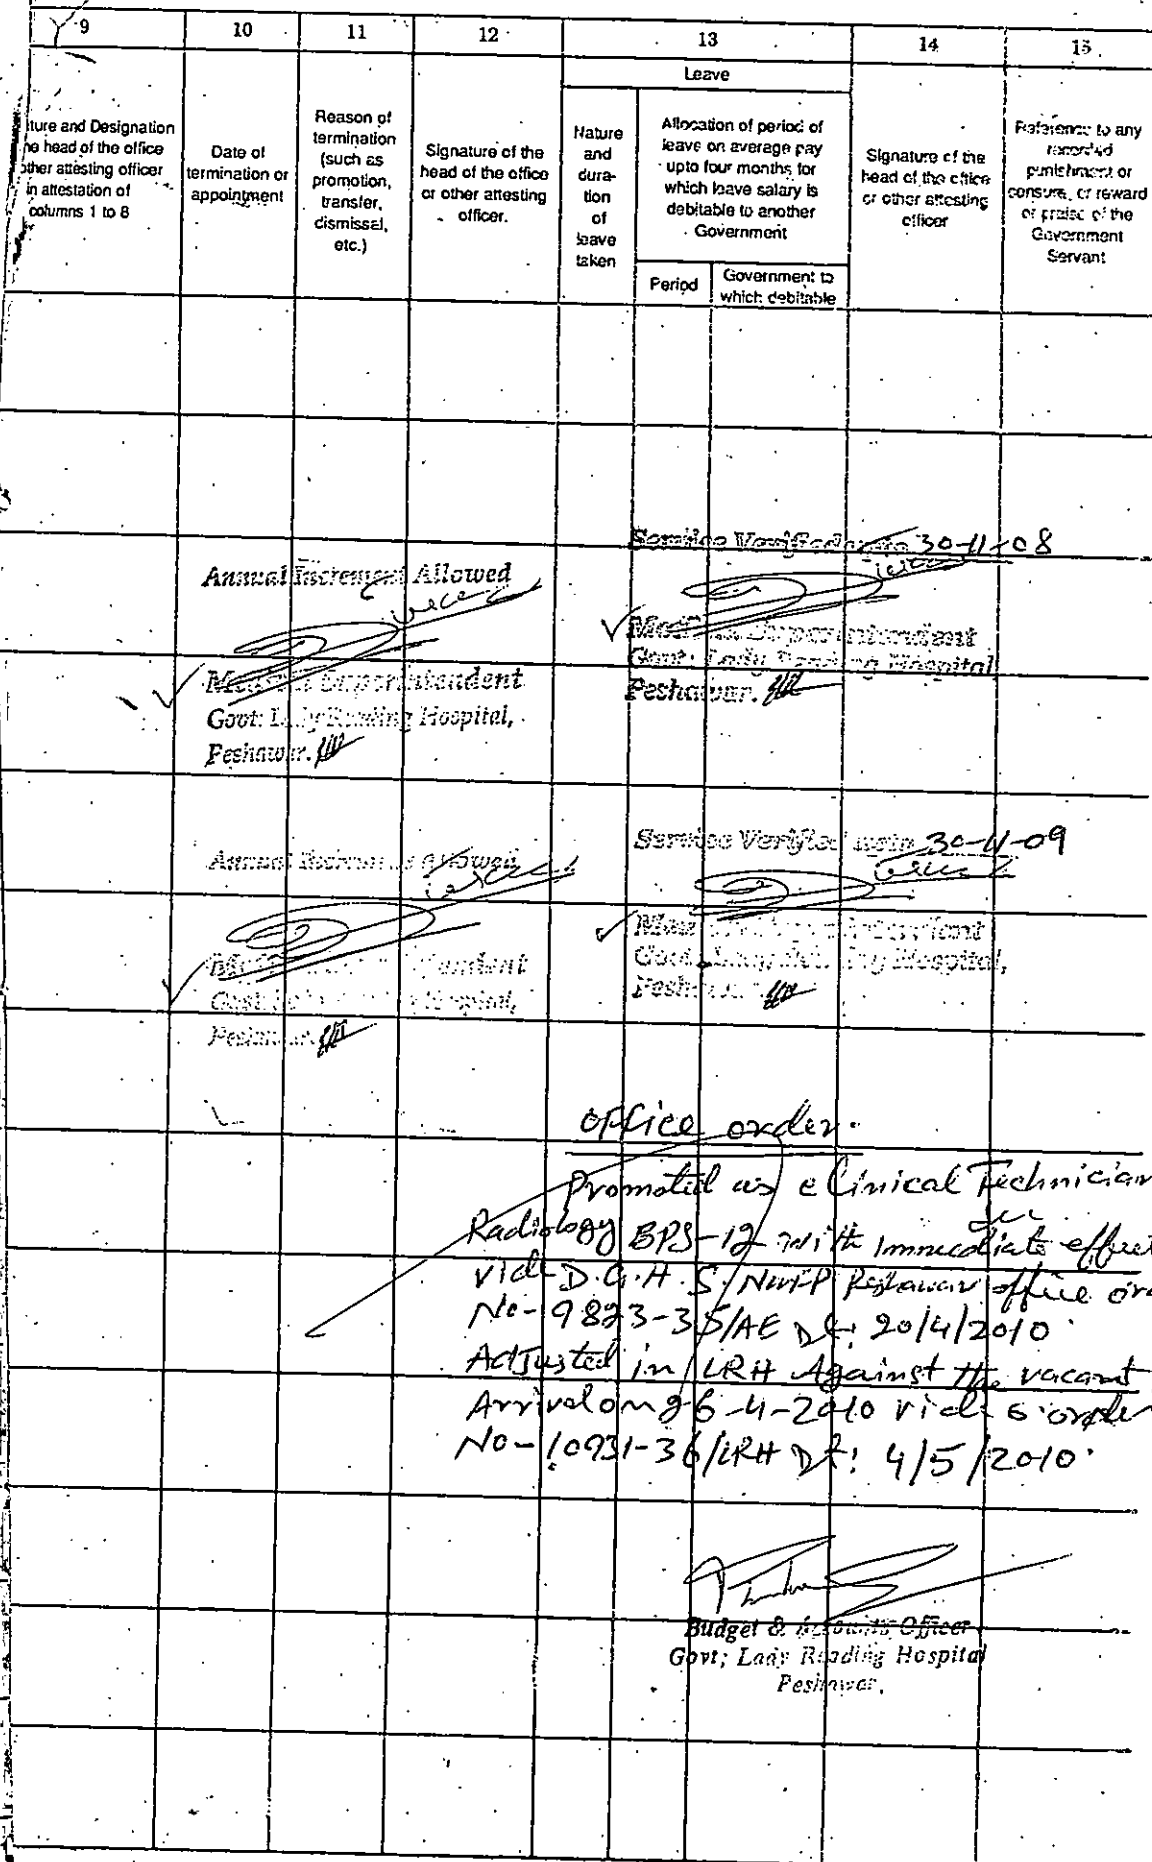 9 10 11 12 13 14 15
Leave
ture and Designation
he head of the office
other attesting officer
in attestation of
columns 1 to 8
Date of
termination or
appointment
Reason of
termination
(such as
promotion,
transfer,
dismissal,
etc.)
Signature of the
head of the office
or other attesting
officer.
Nature
and
dura-
tion
of
leave
taken
Allocation of period of
leave on average pay
upto four months for
which leave salary is
debitable to another
Government
Period
Government to
which debitable
Signature of the
head of the office
or other attesting
officer
Reference to any
recorded
punishment or
censure, or reward
or praise of the
Government
Servant
Service Verified upto 30-11-08
Annual Increment Allowed
Medical Superintendent
Govt: Lady Reading Hospital
Peshawar.
Medical Superintendent
Govt: Lady Reading Hospital,
Peshawar.
Service Verified upto 30-11-09
Annual Increment Allowed
Medical Superintendent
Govt: Lady Reading Hospital,
Peshawar.
Medical Superintendent
Govt: Lady Reading Hospital,
Peshawar.
office order.
Promoted as a Clinical Technician
Radiology BPS-12 with immediate effect
vide D.G.H.S. NWFP Peshawar office ord
No-9823-35/AE Dt: 20/4/2010.
Adjusted in LRH Against the vacant
Arrival on 26-4-2010 vide o.order
No-10931-36/LRH Dt: 4/5/2010.
Budget & Accounts Officer
Govt; Lady Reading Hospital
Peshawar.